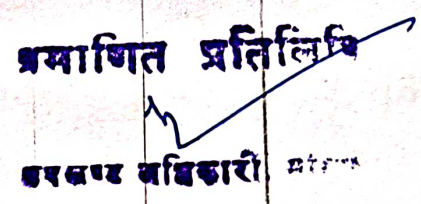 प्रमाणित प्रतिलिपि
उपखण्ड अधिकारी,